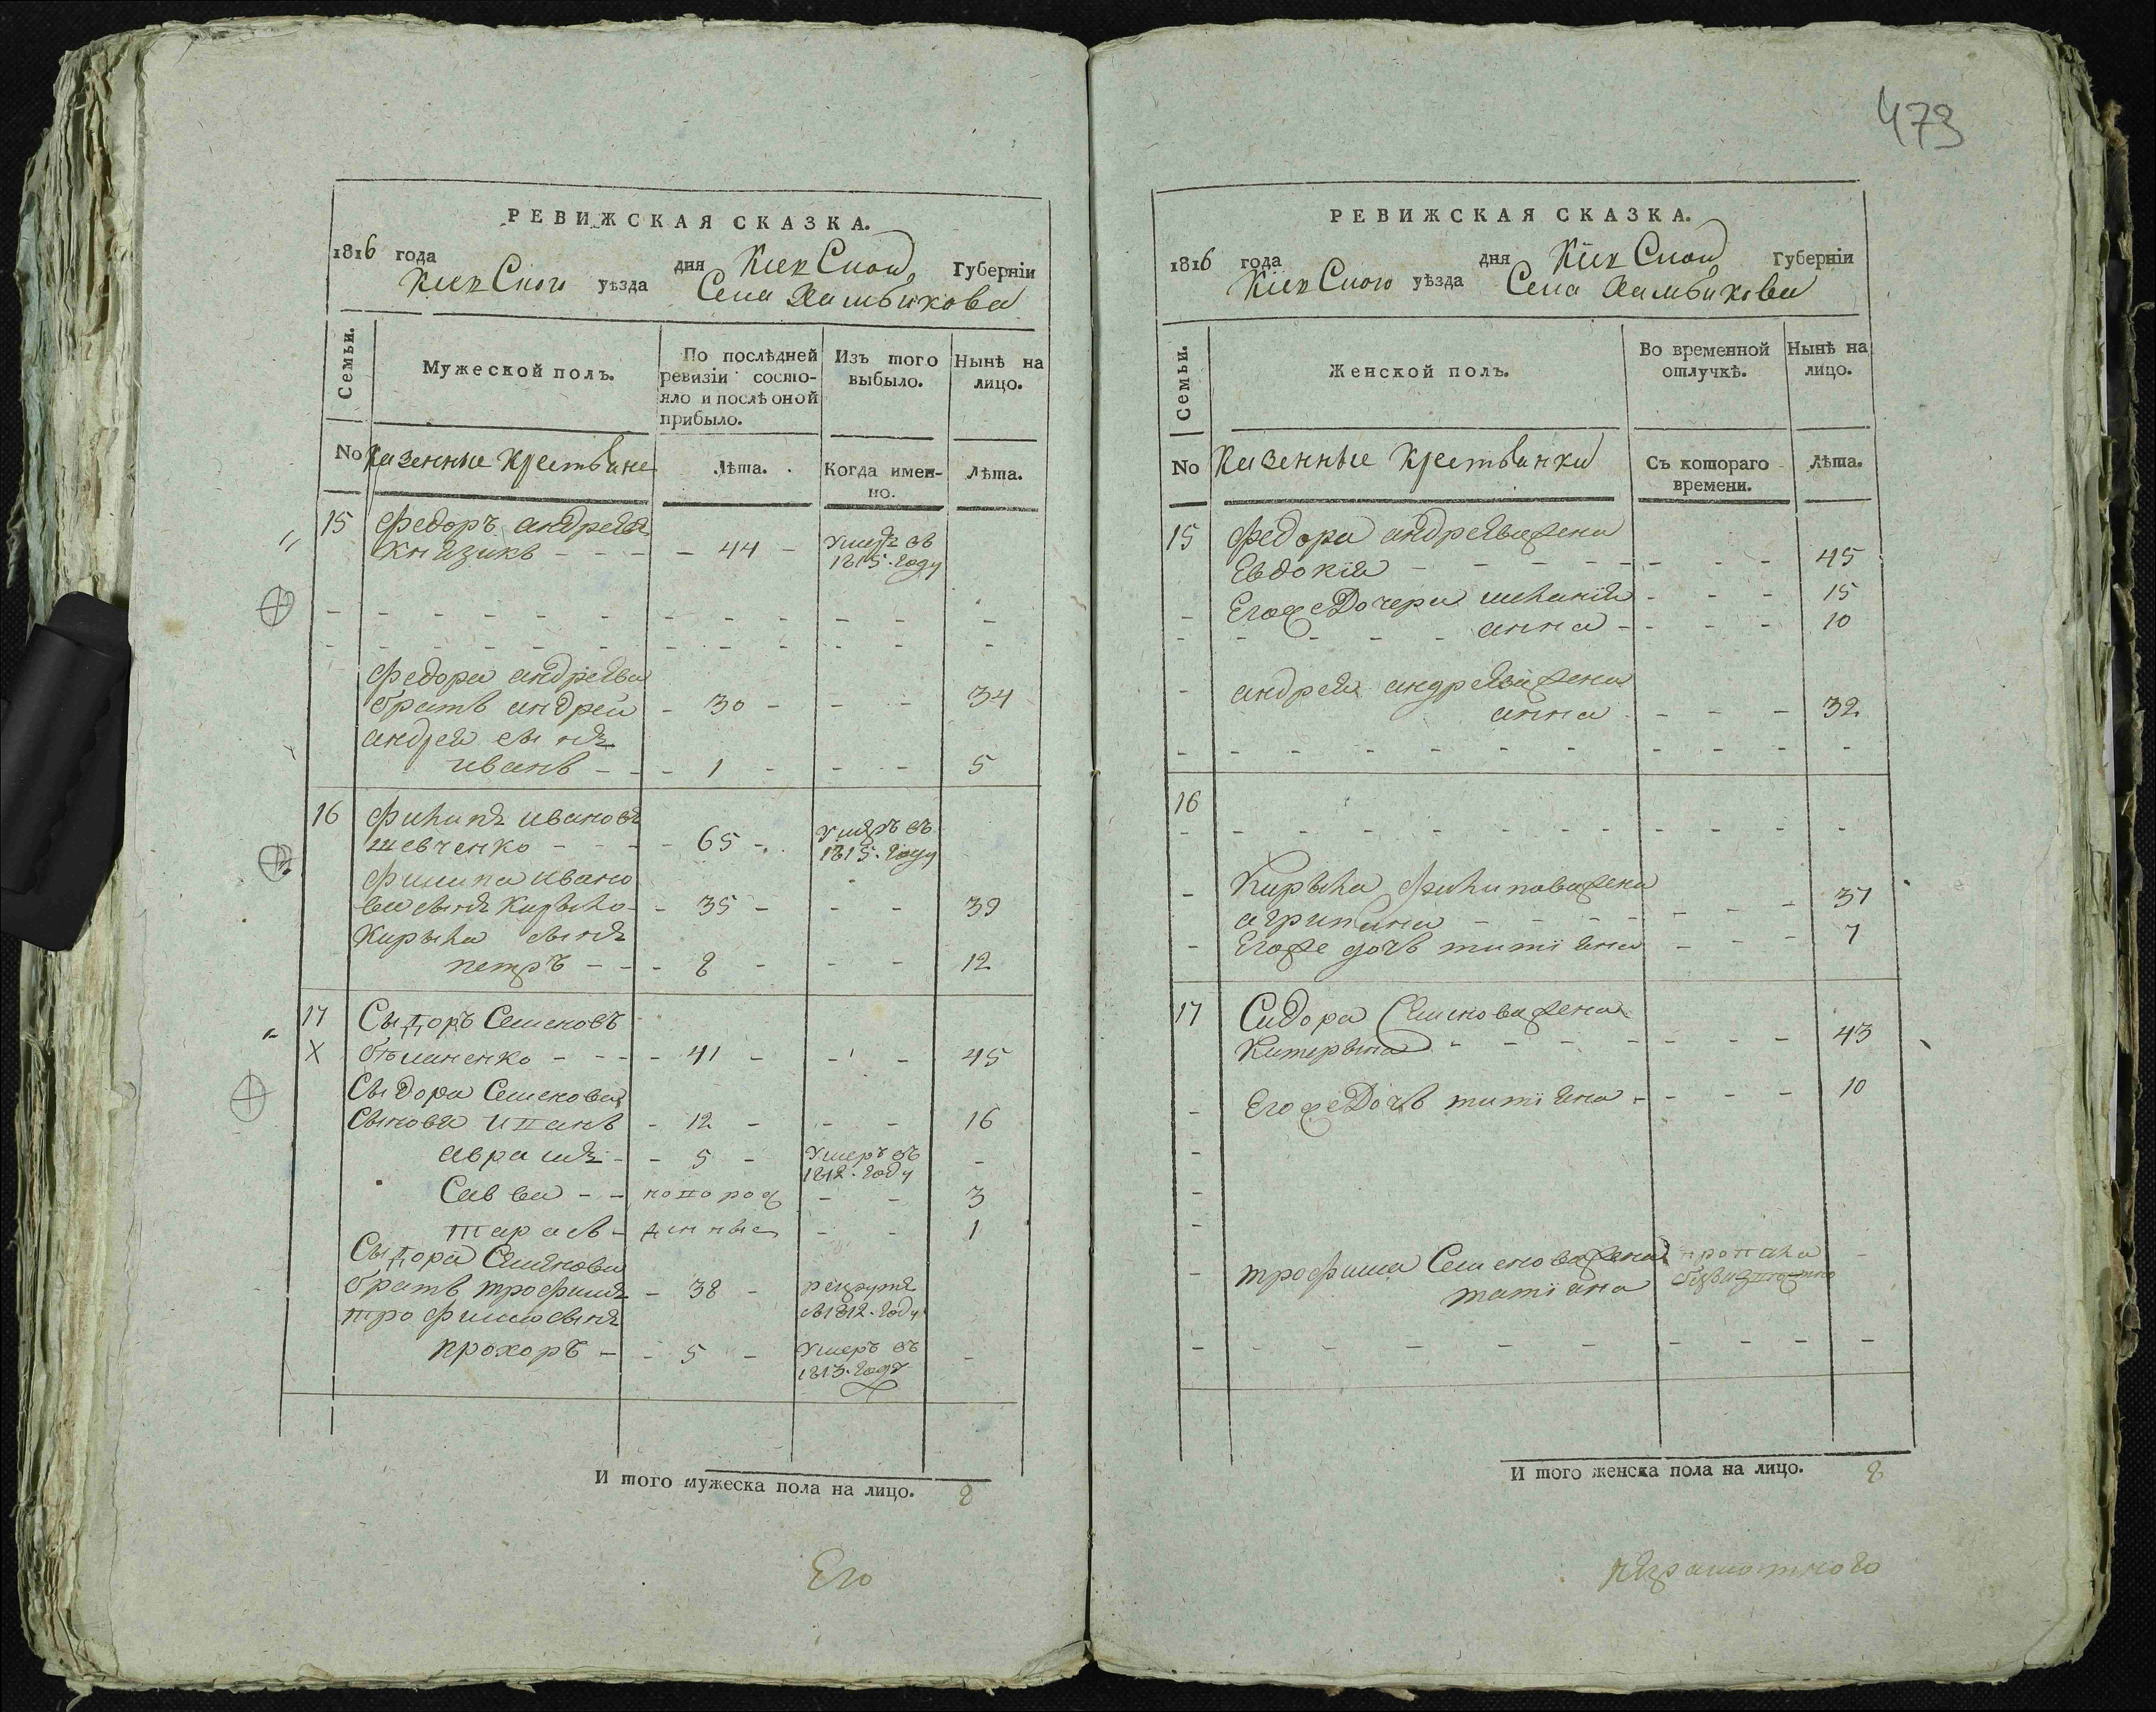 473
РЕВИЖСКАЯ СКАЗКА.
1816 года дня Киевской Губерніи
Киевского уѣзда Села
Семьи.
Мужеской полъ.
По послѣдней ревизіи состо-
яло и послѣ оной
прибыло.
Изъ того выбыло.
Нынѣ на лицо.
No Казенные Крестьяне
Лѣта.
Когда имен-
но.
Лѣта.
15 Федоръ андреевъ
Князикъ - - - 44 - умеръ въ 1815. году
Федора андреева
братъ андрей - 30 - - - 34
андрея сынъ
иванъ - - 1 - - - 5
16 Филипъ ивановъ
шевченко - - - 65 - умеръ въ 1815. году
Филипа ивано
ва сынъ Кирыло - 35 - - - 39
Кирыла сынъ
петръ - - 8 - - - 12
17 Сыдоръ Семеновъ
X - - - 41 - - - 45
Сыдора Семенова
Сыновя - 12 - - - 16
аврамъ - - 5 - умеръ въ 1812. году -
Савва - - новорож - - 3
тарасъ - денные - - 1
Сыдора Семенова
братъ трофимъ - 38 - рекрутъ въ 1812. году
трофима сынъ
прохоръ - - 5 - умеръ въ 1813. году -
И того мужеска пола на лицо. 8
Его
РЕВИЖСКАЯ СКАЗКА.
1816 года дня Киевской Губерніи
Киевского уѣзда Села
Семьи.
Женской полъ.
Во временной отлучкѣ.
Нынѣ на лицо.
No Казенные Крестьянки
Съ котораго времени.
Лѣта.
15 Федора андреева жена
Евдокія - - - 45
Егоже Дочери - - - 15
анна - - - 10
- андрея андреева жена
анна - - - 32
16
- Кирыла Филипова жена
агрипина - - - 37
- Егоже дочь татіяна - - - 7
17 Сидора Семенова жена
Катерына - - - 43
- Егоже Дочь татіяна - - - 10
- трофима Семенова жена пропала -
татіяна безвизвестно
И того женска пола на лицо. 8
неграмотного